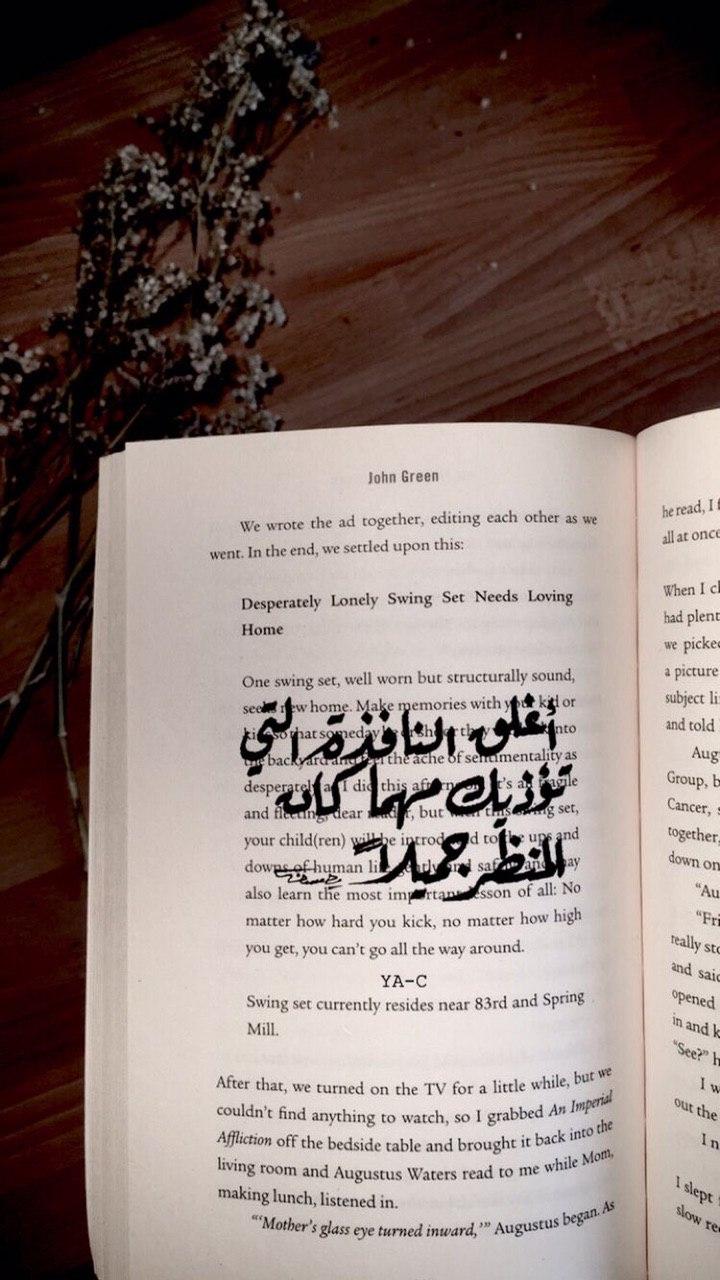 John Green
We wrote the ad together, editing each other as we
went. In the end, we settled upon this:
Desperately Lonely Swing Set Needs Loving
Home
One swing set, well worn but structurally sound,
seeks new home. Make memories with your kid or
so that someday or she they into
the backyard and feel the ache of sentimentality as
desperately as I did this afternoon. It's all fragile
and fleeting, dear reader, but with this swing set,
your child(ren) will be introduced to the ups and
downs of human life gently and safely, and may
also learn the most important lesson of all: No
matter how hard you kick, no matter how high
you get, you can't go all the way around.
أغلق النافذة التي
تؤذيك مهما كان
المنظر جميلاً
YA-C
Swing set currently resides near 83rd and Spring
Mill.
After that, we turned on the TV for a little while, but we
couldn't find anything to watch, so I grabbed An Imperial
Affliction off the bedside table and brought it back into the
living room and Augustus Waters read to me while Mom,
making lunch, listened in.
"'Mother's glass eye turned inward,'" Augustus began. As
he read, I
all at once
When I
had
we
a picture
subject
and told
Group,
Cancer,
together,
down on
really
and said
opened
in and
"See?"
I
out the
I
I slept
slow